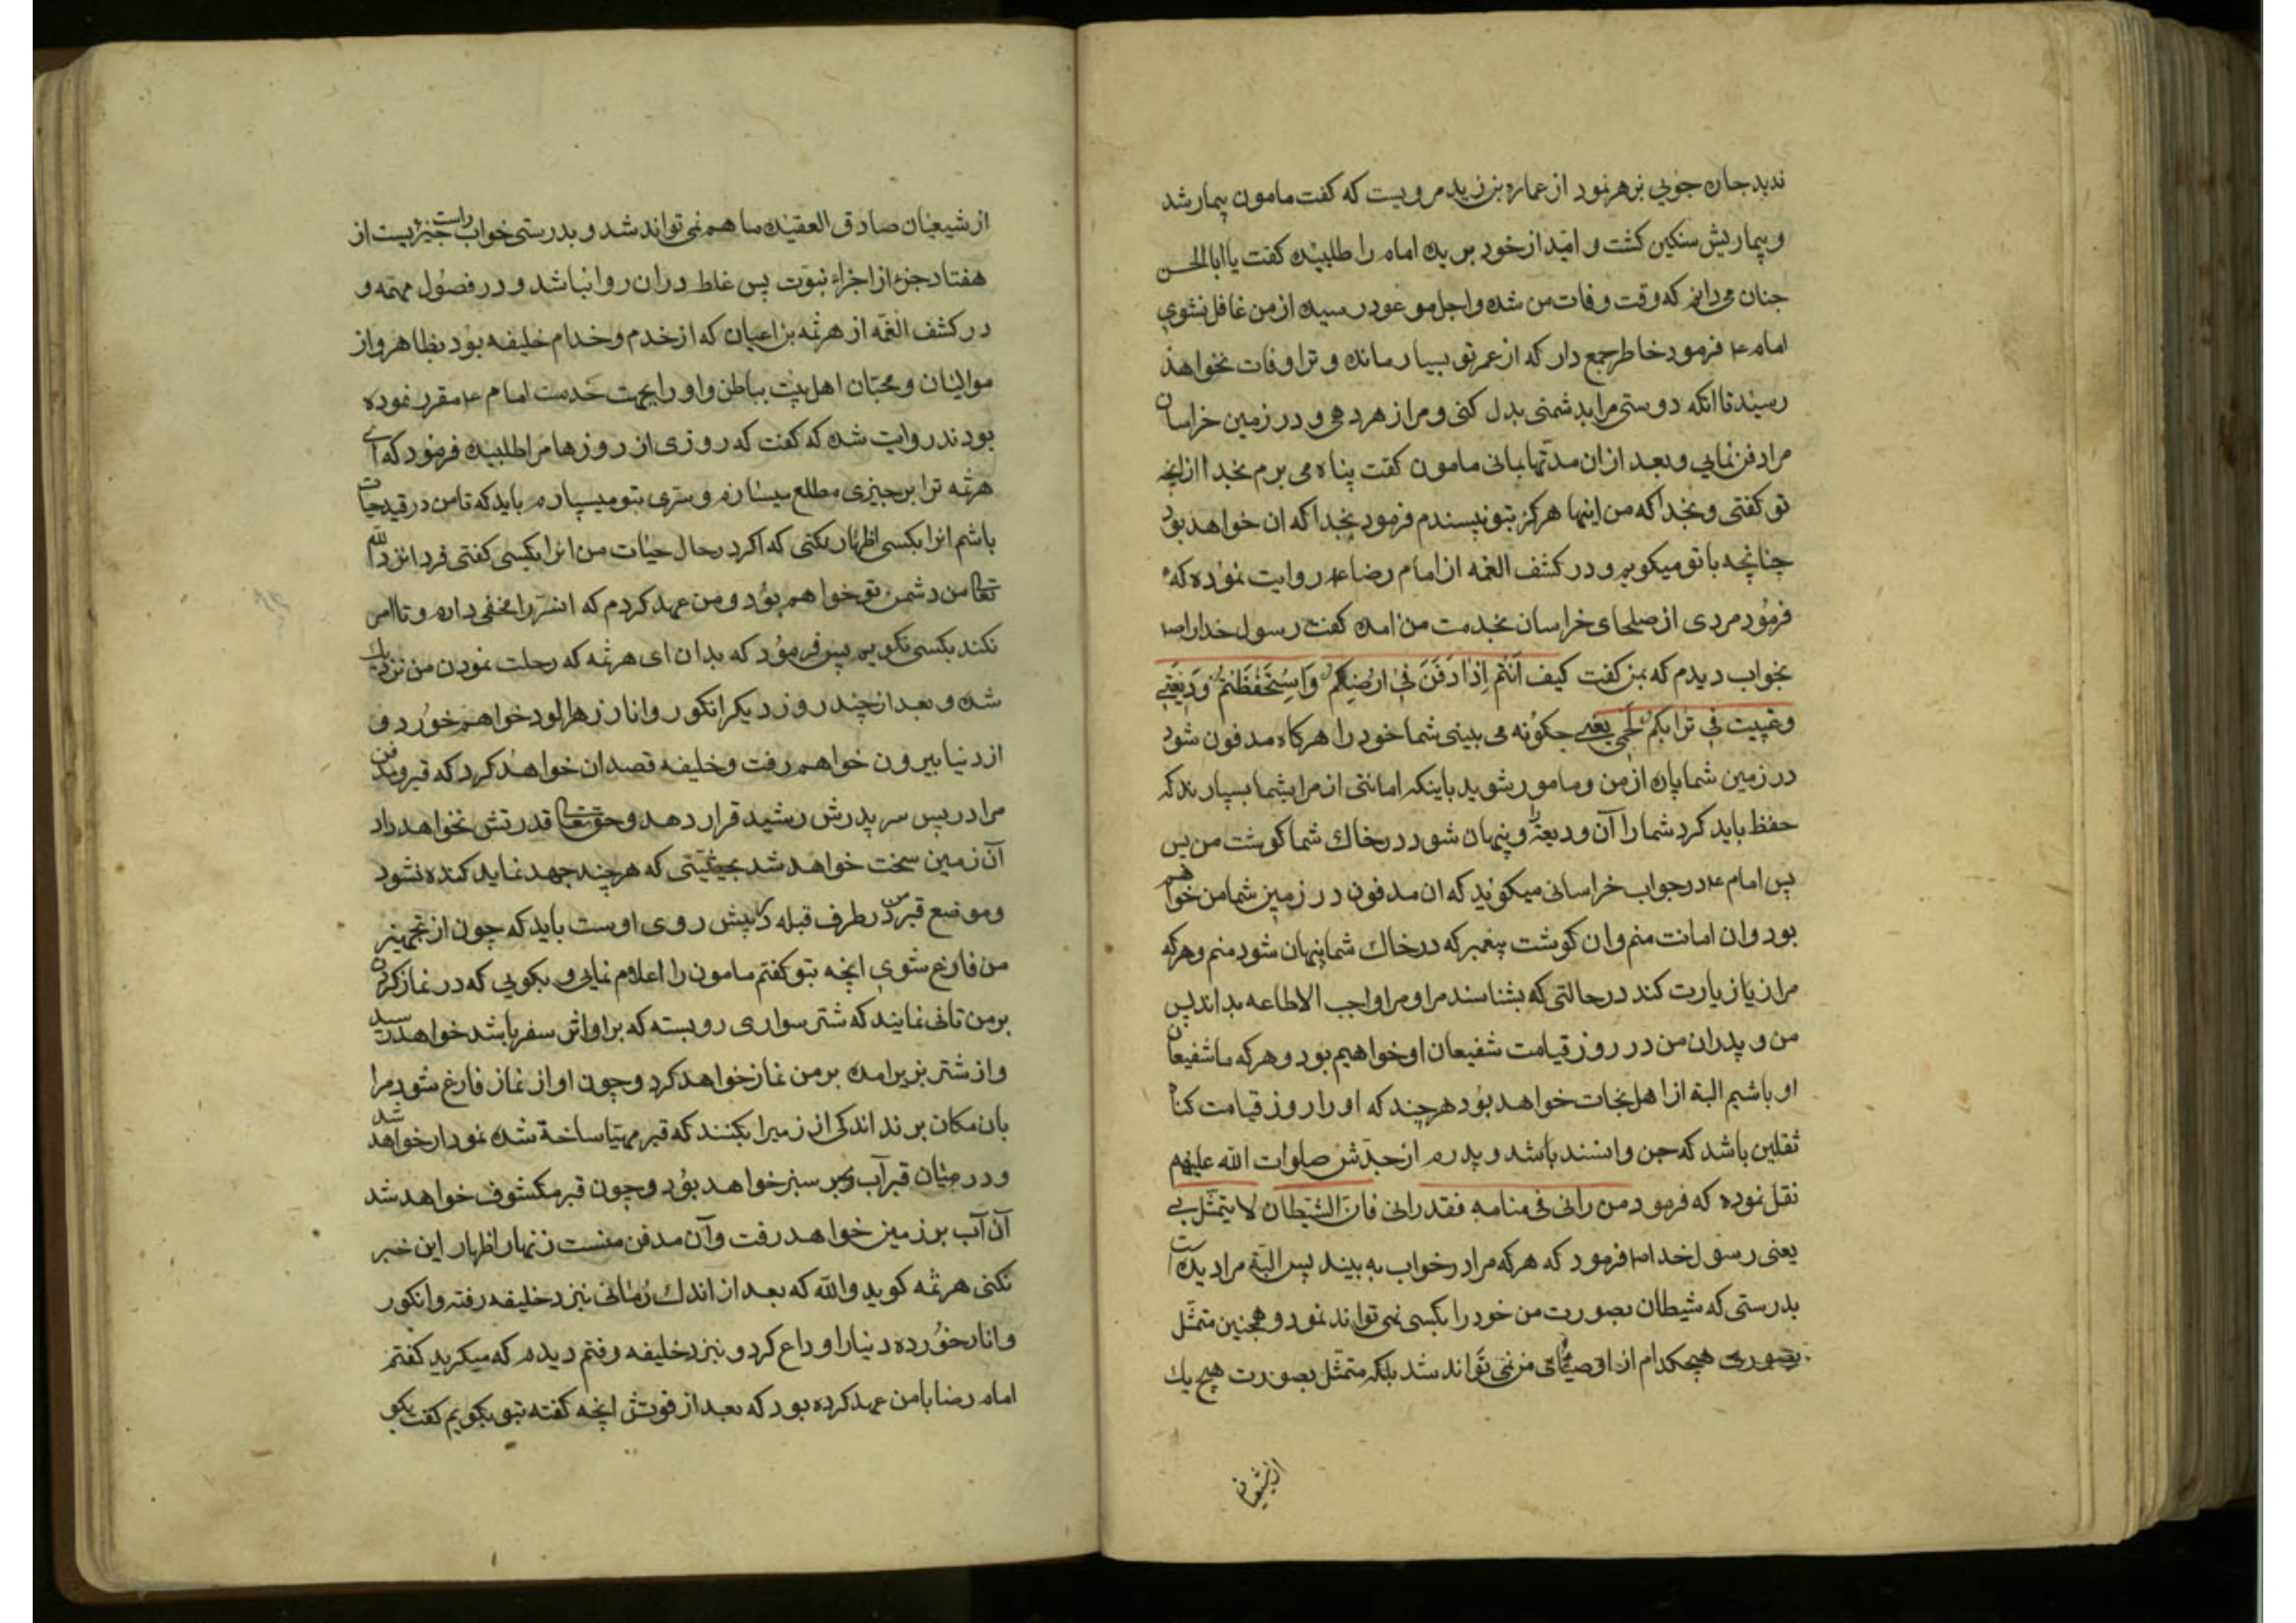 ندید جان جوبی بزهر نمود از عماره بن زید مرویست که کفت مامون بیمار شد
و بیماریش سنکین کشت و امید از خود برید امام را طلبیده کفت یا ابا الحسن
جنان می دانم که وقت وفات من شده واجل موعود رسیده از من غافل نشوی
امام ع فرمود خاطر جمع دار که از عمر تو بسیار مانده و ترا وفات نخواهد
رسید تا انکه دوستی مرا بدشمنی بدل کنی و مرا زهر دهی و در زمین خراسان
مرا دفن نمایی و بعد از ان مدتها بمانی مامون کفت پناه می برم بخدا از انچه
تو کفتی و بخدا که من اینها هرکز بتو نپسندم فرمود بخدا که ان خواهد بود
چنانچه با تو میکویم و در کشف الغمه از امام رضا ع روایت نموده که
فرمود مردی از صلحای خراسان بخدمت من امده کفت رسول خدا را ص
بخواب دیدم که بمن کفت کیف انتم اذا دفن فی ارضکم واستحفظتم ودیعتی
وغیبت فی ترابکم لحمی یعنی چکونه می بینی شما خود را هرکاه مدفون شود
در زمین شما پاره از من و مامور شوید باینکه امانتی از مرا بشما بسپارند که
حفظ باید کرد شما را آن ودیعة را و پنهان شود در خاك شما کوشت من پس
پس امام ع در جواب خراسانی میکوید که ان مدفون در زمین شما من خواهم
بود و ان امانت منم و ان کوشت پیغمبر که در خاك شما پنهان شود منم و هرکه
مرا زیارت کند در حالتی که بشناسد مرا و مرا واجب الاطاعه بداند پس
من و پدران من در روز قیامت شفیعان او خواهیم بود و هرکه ما شفیعان
او باشیم البة از اهل نجات خواهد بود هرچند که او را روز قیامت کناه
ثقلین باشد که جن و انسند باشد و پدرم از جدش صلوات الله علیهم
نقل نموده که فرمود من رانی فی منامه فقد رانی فان الشیطان لا یتمثل بی
یعنی رسول خدا ص فرمود که هرکه مرا در خواب به بیند پس البة مرا دیده است
بدرستی که شیطان بصورت من خود را بکسی نمی تواند نمود و همچنین متمثل
بصورت هیچکدام از اوصیای من نمی تواند شد بلکه متمثل بصورت هیچ یك
از شیعان
از شیعیان صادق العقیده ما هم نمی تواند شد و بدرستی خواب راست جزئیست از
هفتاد جزء از اجزاء نبوت پس غلط دران روا نباشد و در فصول مهمه و
در کشف الغمه از هرثمه بن اعیان که از خدم و خدام خلیفه بود بظاهر و از
موالیان و محبان اهل بیت بباطن و او را بجهت خدمت امام ع مقرر نموده
بودند روایت شده که کفت که روزی از روزها مرا طلبیده فرمود که ای
هرثمه ترا بر چیزی مطلع میسازم و سری بتو میسپارم باید که تا من در قید حیات
باشم انرا بکسی اظهار نکنی که اکر در حال حیات من انرا بکسی کفتی فردا نزد الله
تعا من دشمن تو خواهم بود و من عهد کردم که انسر را مخفی دارم و تا امر
نکند بکسی نکویم پس فرمود که بدان ای هرثمه که رحلت نمودن من نزدیك
شده و بعد از چند روز دیکر انکور و انار زهر الود خواهم خورد و
از دنیا بیرون خواهم رفت و خلیفه قصد ان خواهد کرد که قبر و مدفن
مرا در پس سر پدرش رشید قرار دهد و حق تعا قدرتش نخواهد داد
آن زمین سخت خواهد شد بحیثیتی که هرچند جهد نماید کنده نشود
و موضع قبر من در طرف قبله که پیش روی اوست باید که چون از تجهیز
من فارغ شوی انچه بتو کفتم مامون را اعلام نمایی و بکویی که در نماز کردن
بر من تانی نمایند که شتر سواری رو بسته که بر او اثر سفر باشد خواهد رسید
و از شتر بزیر امده بر من نماز خواهد کرد و چون او از نماز فارغ شود مرا
بان مکان برند اندکی از زمین را بکنند که قبر مهیا ساخة شده نمودار خواهد شد
و در میان قبر آب سبز خواهد بود و چون قبر مکشوف خواهد شد
آن آب بر زمین خواهد رفت و آن مدفن منست زنهار اظهار این خبر
نکنی هرثمه کوید والله که بعد از اندك زمانی نزد خلیفه رفته و انکور
و انار خورده دنیا را وداع کرد و نزد خلیفه رفتم دیدم که میکرید کفتم
امام رضا با من عهد کرده بود که بعد از فوتش انچه کفته بتو بکویم کفت بکو